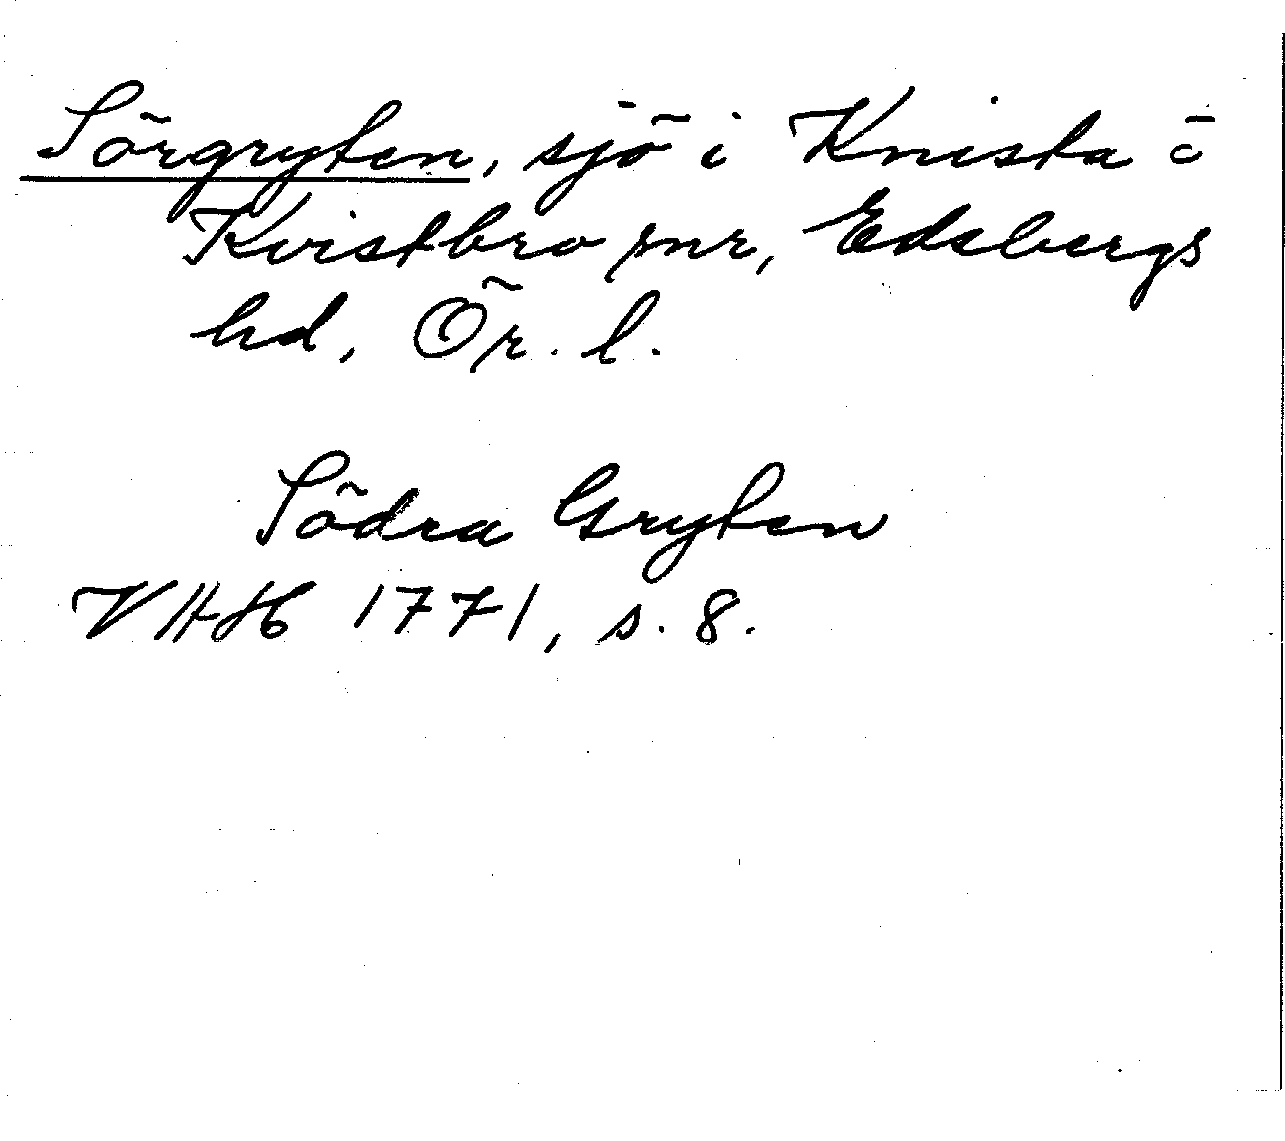 Sörgryten, sjö i Knista o
Kvistbro snr, Edsbergs
hd, Ör. l.
Södra Gryten
VHAH 1771, s. 8.